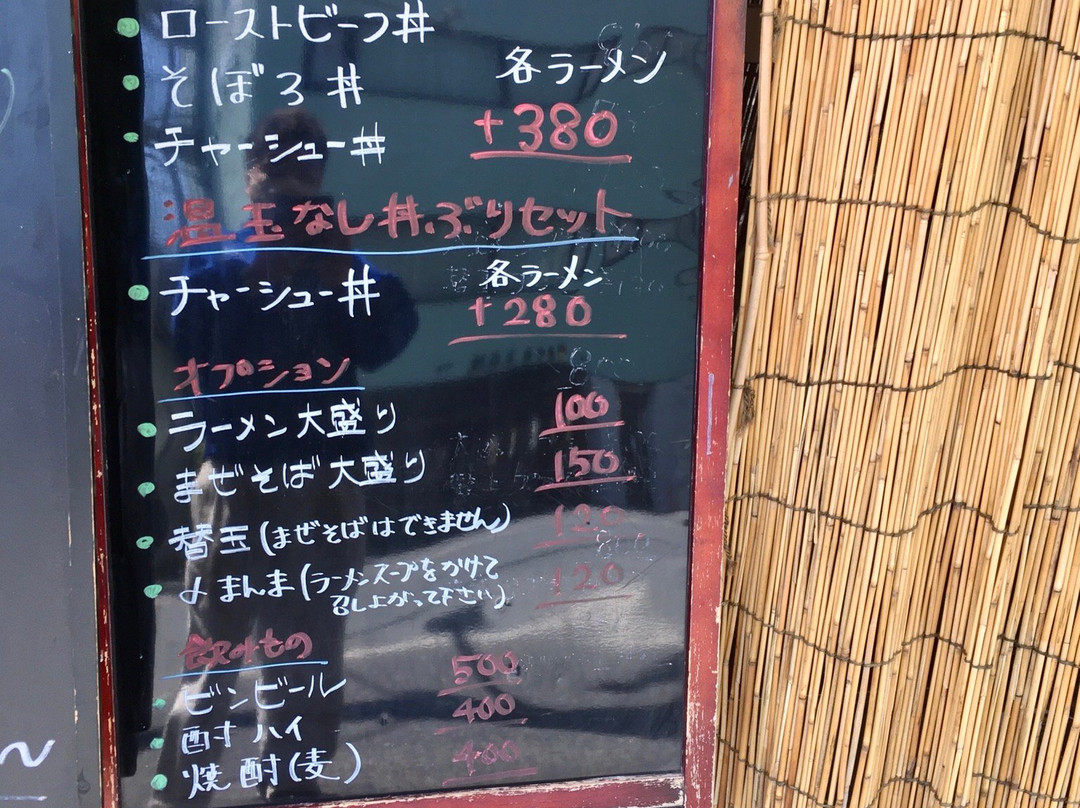 ローストビーフ丼
そぼろ丼
各ラーメン
チャーシュー丼
+380
温玉なし丼ぶりセット
チャーシュー丼
各ラーメン
+280
オプション
ラーメン大盛り 100
まぜそば大盛り 150
替玉(まぜそばはできません) 120
〆まんま(ラーメンスープをかけて 120
召し上がって下さい)
飲みもの
ビンビール 500
酎ハイ 400
焼酎(麦) 400